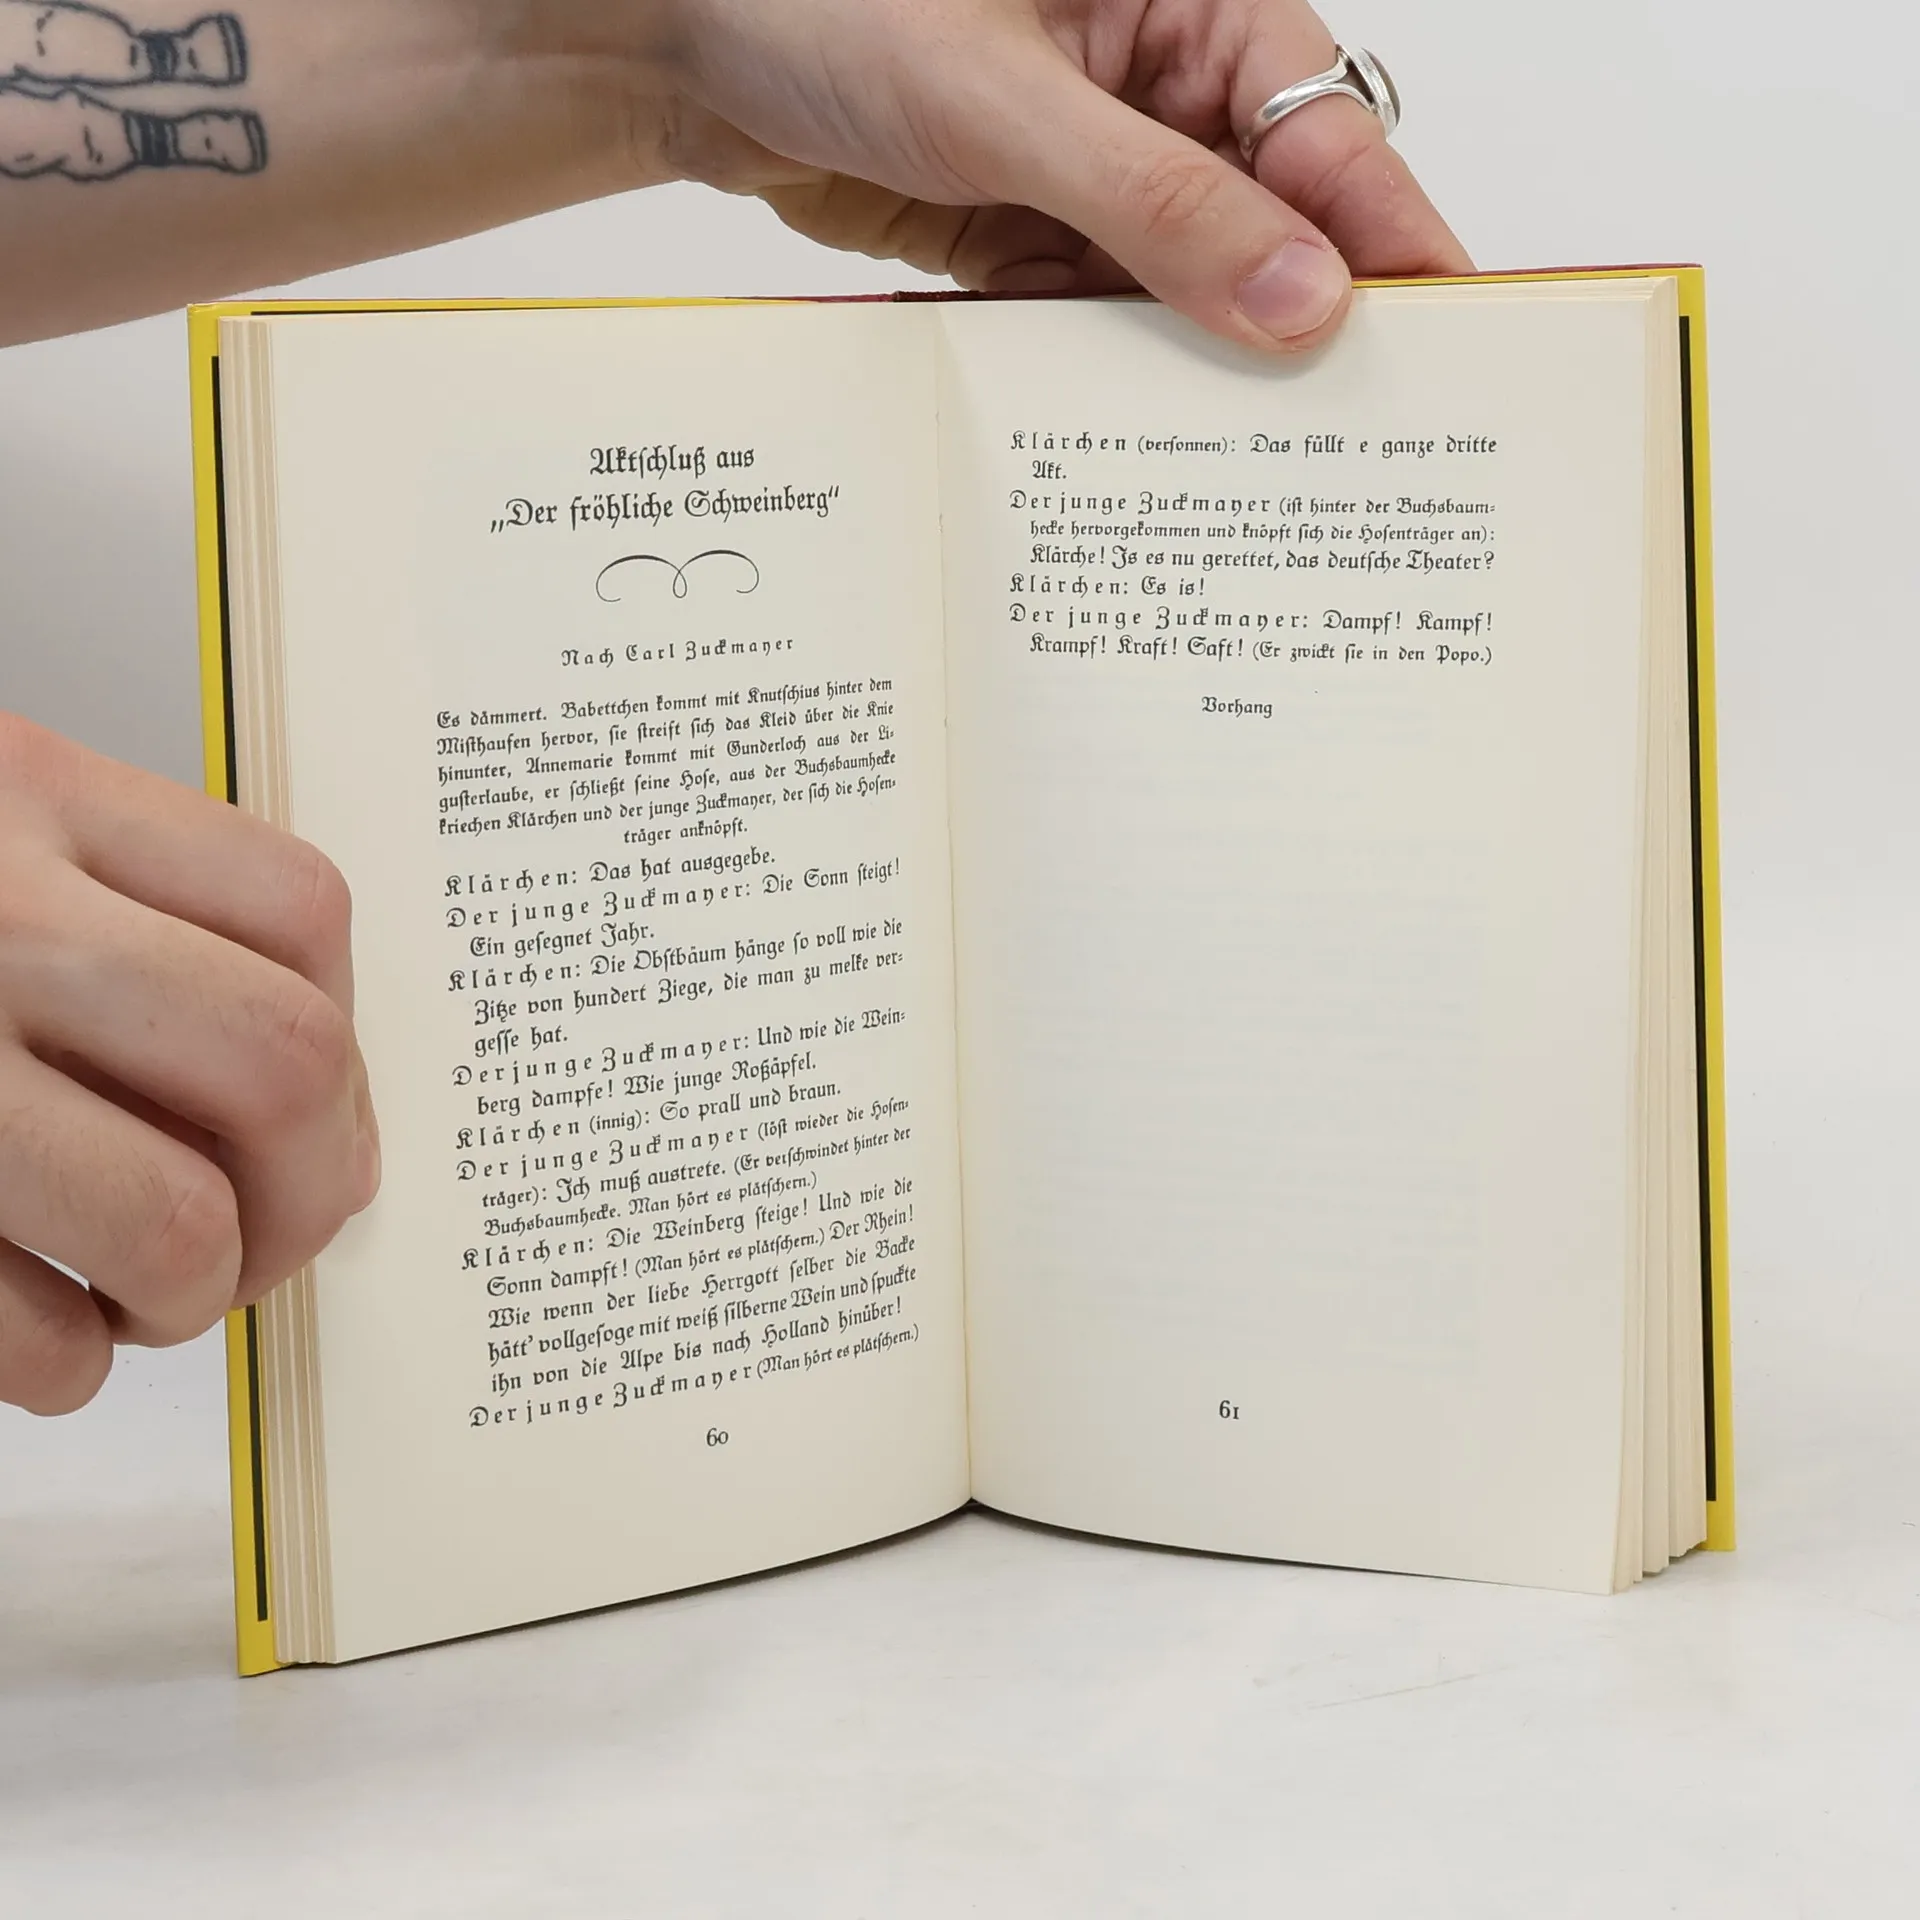 Aktschluß aus
„Der fröhliche Schweinberg“
Nach Carl Zuckmayer
Es dämmert. Babettchen kommt mit Knutschius hinter dem
Misthaufen hervor, sie streift sich das Kleid über die Knie
hinunter, Annemarie kommt mit Gunderloch aus der Li-
gusterlaube, er schließt seine Hose, aus der Buchsbaumhecke
kriechen Klärchen und der junge Zuckmayer, der sich die Hosen-
träger anknöpft.
Klärchen: Das hat ausgegebe.
Der junge Zuckmayer: Die Sonn steigt!
Ein gesegnet Jahr.
Klärchen: Die Obstbäum hänge so voll wie die
Zitze von hundert Ziege, die man zu melke ver-
gesse hat.
Der junge Zuckmayer: Und wie die Wein-
berg dampfe! Wie junge Roßäpfel.
Klärchen (innig): So prall und braun.
Der junge Zuckmayer (löst wieder die Hosen-
träger): Ich muß austrete. (Er verschwindet hinter der
Buchsbaumhecke. Man hört es plätschern.)
Klärchen: Die Weinberg steige! Und wie die
Sonn dampft! (Man hört es plätschern.) Der Rhein!
Wie wenn der liebe Herrgott selber die Backe
hätt' vollgesoge mit weiß silberne Wein und spuckte
ihn von die Alpe bis nach Holland hinüber!
Der junge Zuckmayer (Man hört es plätschern.)
60
Klärchen (versonnen): Das füllt e ganze dritte
Akt.
Der junge Zuckmayer (ist hinter der Buchsbaum-
hecke hervorgekommen und knöpft sich die Hosenträger an):
Klärche! Is es nu gerettet, das deutsche Theater?
Klärchen: Es is!
Der junge Zuckmayer: Dampf! Kampf!
Krampf! Kraft! Saft! (Er zwickt sie in den Popo.)
Vorhang
61